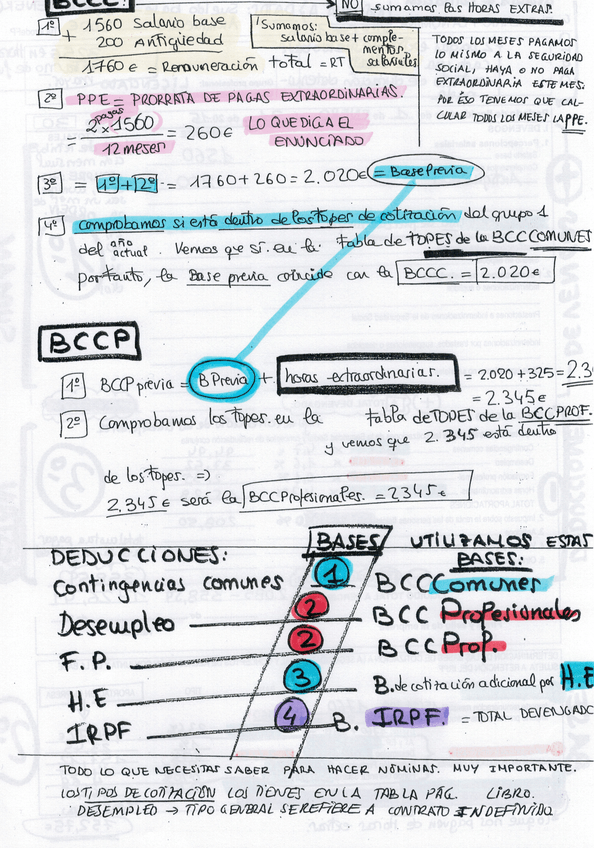 BCCC:
NO sumamos las HORAS EXTRAS.
1º + 1560 Salario base
200 Antigüedad
1760€ = Remuneración total = RT
Sumamos:
salario base + comple-
mentos
salariales
TODOS LOS MESES PAGAMOS
LO MISMO A LA SEGURIDAD
SOCIAL, HAYA O NO PAGA
EXTRAORDINARIA ESTE MES.
POR ESO TENEMOS QUE CAL-
CULAR TODOS LOS MESES LA PPE.
2º PPE = PRORRATA DE PAGAS EXTRAORDINARIAS.
pagas
2 x 1560 = 260€ LO QUE DIGA EL
12 meses ENUNCIADO
3º = 1º + 2º = 1760 + 260 = 2.020€ = Base Previa
4º Comprobamos si está dentro de los topes de cotización del grupo 1
del año actual. Vemos que sí. en la Tabla de TOPES de la BCC COMUNES
por tanto, la Base previa coincide con la BCCC. = 2.020€
BCCP
1º BCCP previa = B Previa + horas extraordinarias. = 2.020 + 325 = 2.3
= 2.345€
2º Comprobamos los topes. en la tabla de TOPES de la BCCPROF.
y vemos que 2.345 está dentro
de los topes. =>
2.345€ será la BCC Profesionales. = 2345€
DEDUCCIONES: BASES UTILIZAMOS ESTAS
BASES:
Contingencias comunes 1 BCC Comunes
Desempleo 2 BCC Profesionales
F.P. 2 BCC Prof.
H.E 3 B. de cotización adicional por H.E
IRPF 4 B. IRPF. = TOTAL DEVENGADO
TODO LO QUE NECESITAS SABER PARA HACER NÓMINAS. MUY IMPORTANTE.
LOS TIPOS DE COTIZACIÓN LOS TIENES EN LA TABLA PÁG. LIBRO.
DESEMPLEO → TIPO GENERAL SE REFIERE A CONTRATO INDEFINIDO